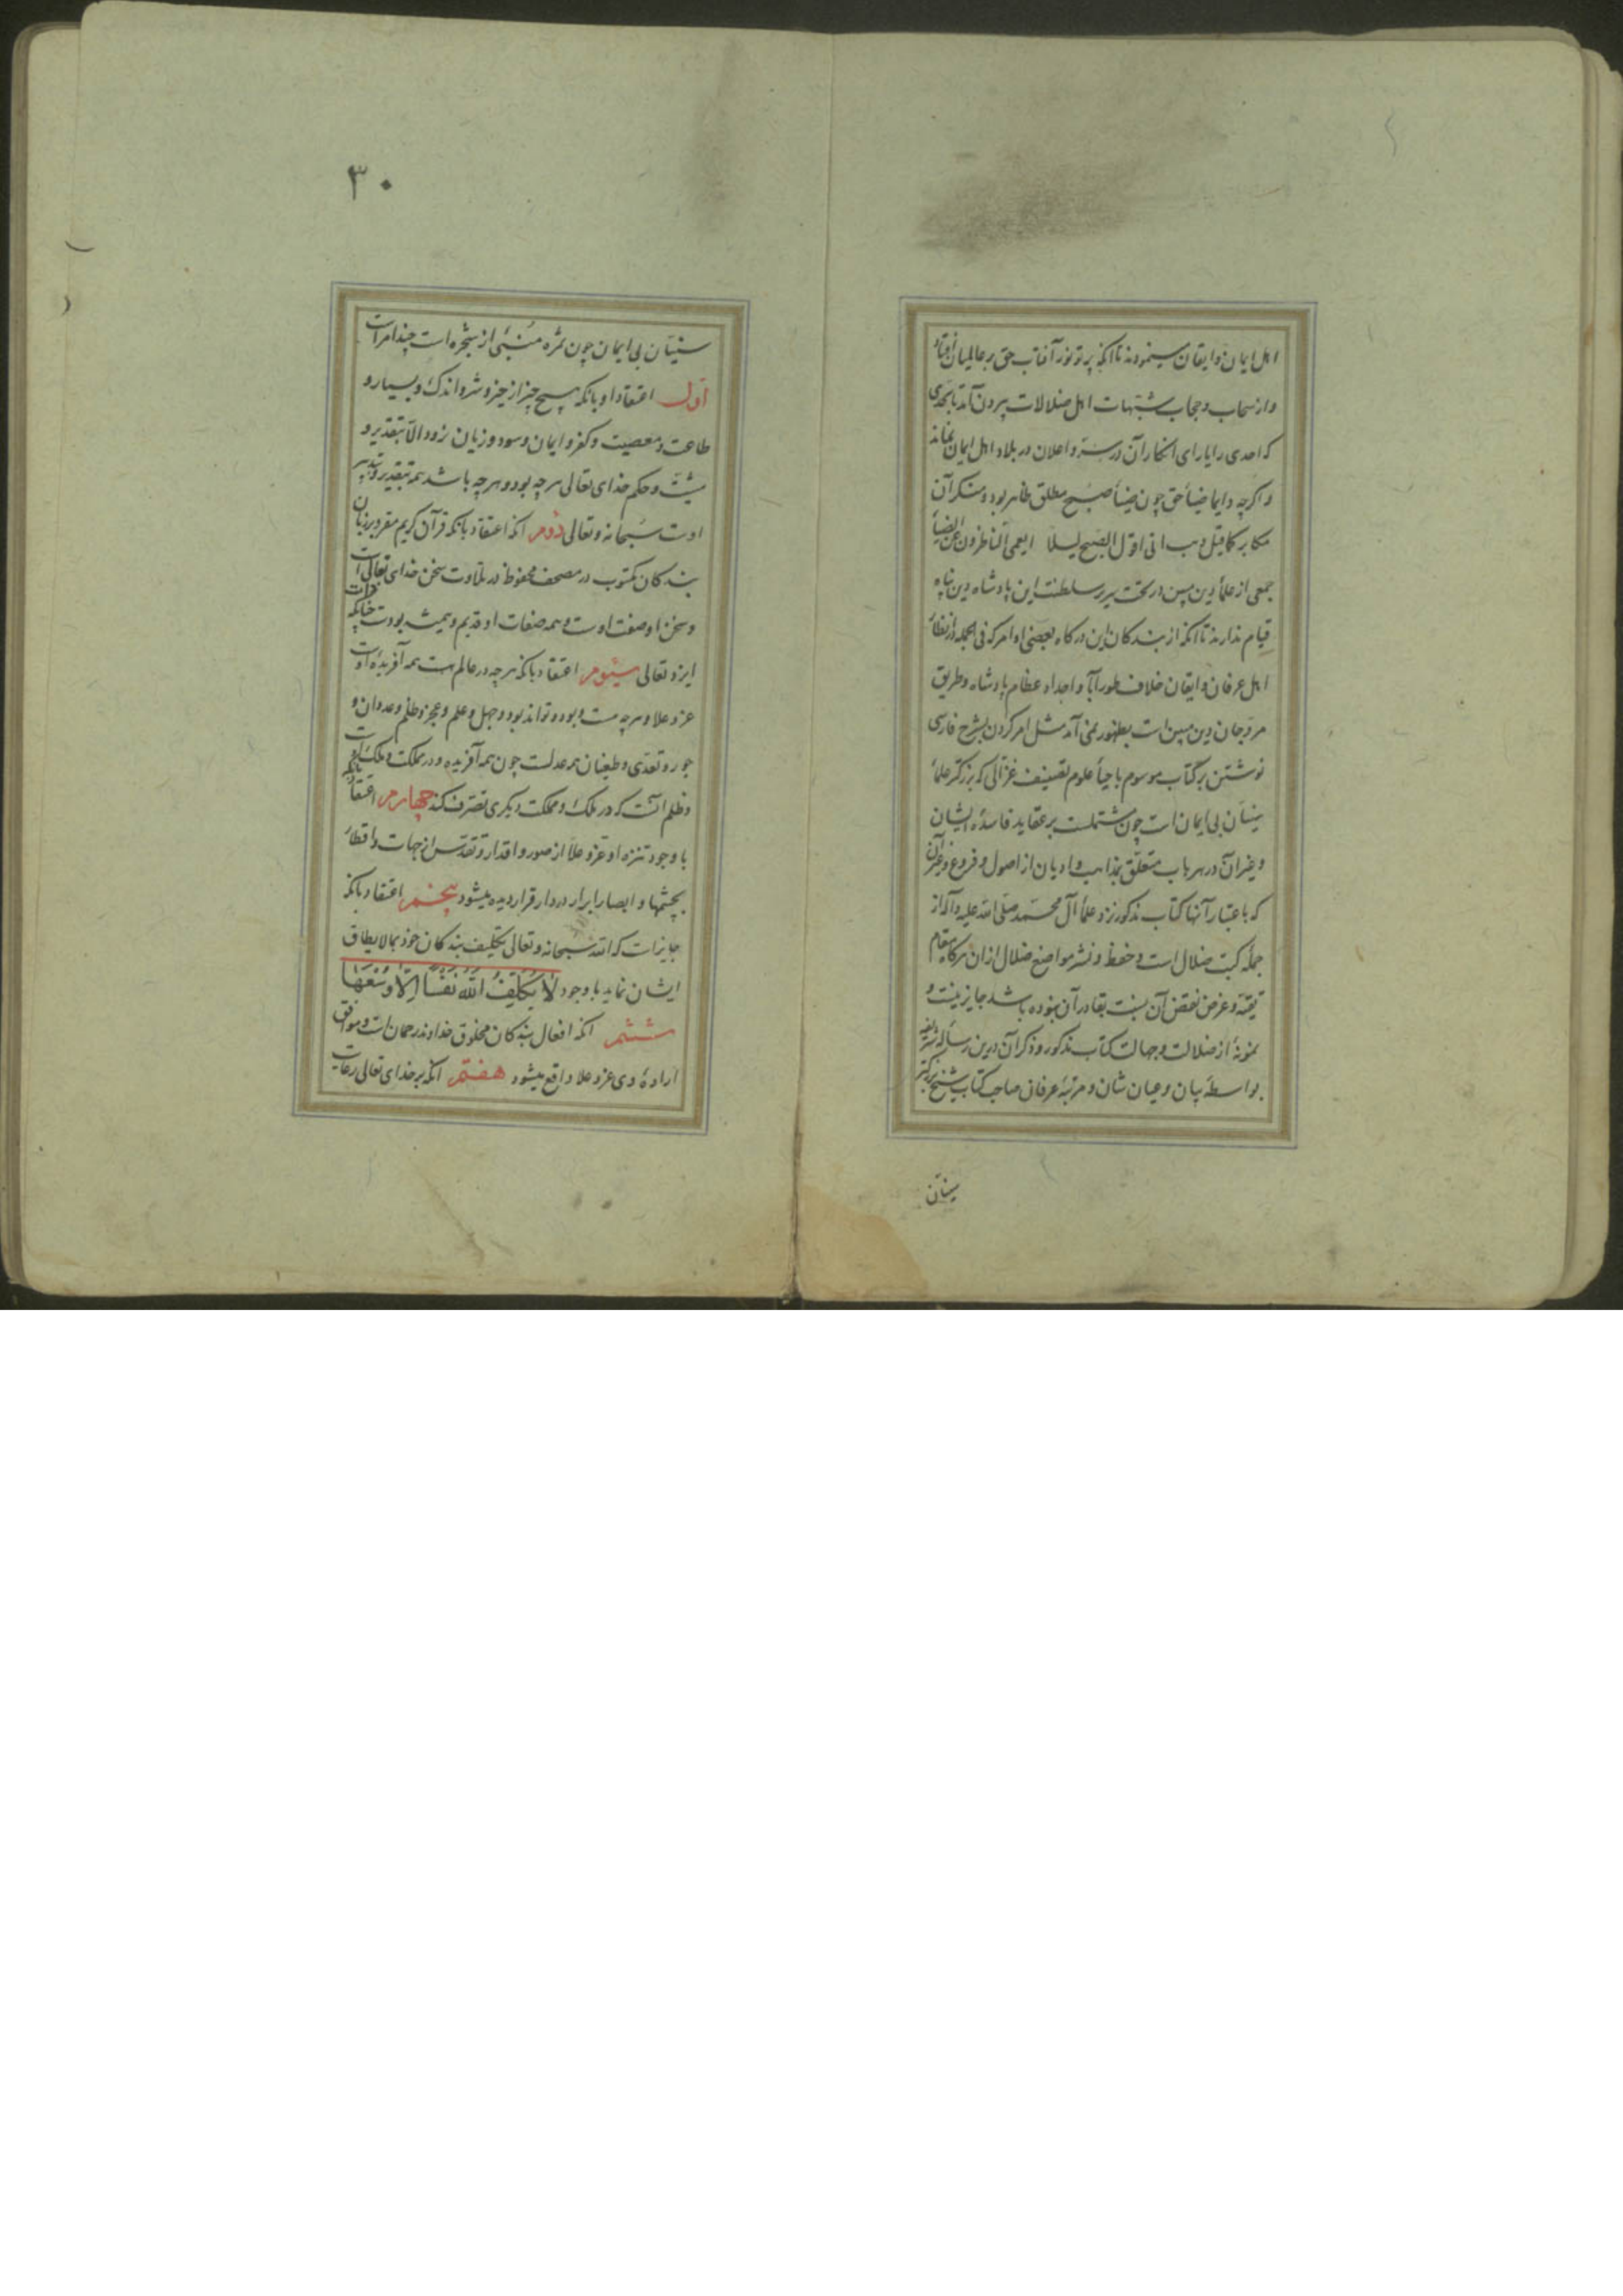 اهل ایمان و ایقان مینمودند تا آنکه پرتو نور آفتاب حق بر عالمیان افتاد
و از سحاب و حجاب شبهات اهل ضلالات بیرون آمد تا بحدی
که احدی را یارای انکار آن در سر و اعلان در بلاد اهل ایمان نماند
و اکرچه دایما ضیاء حق چون ضیاء صبح مطلق ظاهر بود و منکر آن
مکابر کما قیل و هب انی اقول الصبح لیلا ایعمی الناظرون عن الضیاء
جمعی از علماء دین مبین در تحت سریر سلطنت این پادشاه دین پناه
قیام ندارند تا آنکه از بندکان این درکاه بعضی اوامر که فی الجمله در انظار
اهل عرفان و ایقان خلاف طور آبا و اجداد عظام پادشاه و طریق
مروجان دین مبین است بظهور نمی آمد مثل امر کردن بشرح فارسی
نوشتن بر کتاب موسوم باحیاء علوم تصنیف غزالی که بزرکتر علماء
سنیان بی ایمان است چون مشتملست بر عقاید فاسده ایشان
و غیر آن در هر باب متعلق بمذاهب و ادیان از اصول و فروع و غیر آن
که باعتبار آنها کتاب مذکور نزد علماء آل محمد صلی الله علیه و آله از
جمله کتب ضلال است و حفظ و نشر مواضع ضلال از آن هرکاه مقام
تقیه و غرض نقض آن بنسبت بقادر آن نبوده باشد جایز نیست و
نمونهٔ از ضلالت و جهالت کتاب مذکور و ذکر آن درین رساله
بواسطهٔ بیان و عیان شان و مرتبهٔ عرفان صاحب کتاب شیخ بزرکتر
سنیان
۳۰
سنیان بی ایمان چون ثمره منبئی از شجره است چند امر است
اول اعتقاد او بانکه هیچ چیز از خیر و شر و اندک و بسیار و
طاعت و معصیت و کفر و ایمان و سود و زیان نرود الا بتقدیر و
مشیت و حکم خدای تعالی هرچه بود و هرچه باشد همه بتقدیر و تدبیر
اوست سبحانه و تعالی دوم آنکه اعتقاد بانکه قرآن کریم مقرو بر زبان
بندکان مکتوب در مصحف محفوظ در تلاوت سخن خدای تعالی است
و سخن او صفت اوست و همه صفات او قدیم و همیشه بودست چنانکه ذات
ایزد تعالی سیوم اعتقاد بانکه هرچه در عالم هست همه آفریدهٔ اوست
عز و علا و هرچه هست و بود و تواند بود و جهل و علم و عجز و ظلم و عدوان و
جور و تعدی و طغیان همه عدلست چون همه آفریده و در مملکت و ملک اوست
و ظلم آنست که در ملک و مملکت دیکری تصرف کند چهارم اعتقاد بانکه
با وجود تنزه او عز و علا از صور و اقدار و تقدس از جهات و اقطار
بچشمها و ابصار ابرار در دار قرار دیده میشود پنجم اعتقاد بانکه
جایز است که الله سبحانه و تعالی تکلیف بندکان خود بما لا یطاق
ایشان نماید با وجود لَا يُكَلِّفُ اللَّهُ نَفْسًا إِلَّا وُسْعَهَا
ششم آنکه افعال بندکان مخلوق خداوند رحمان است و موافق
ارادهٔ وی عز و علا واقع میشود هفتم آنکه بر خدای تعالی رعایت